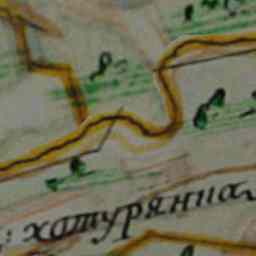 : хатурянна